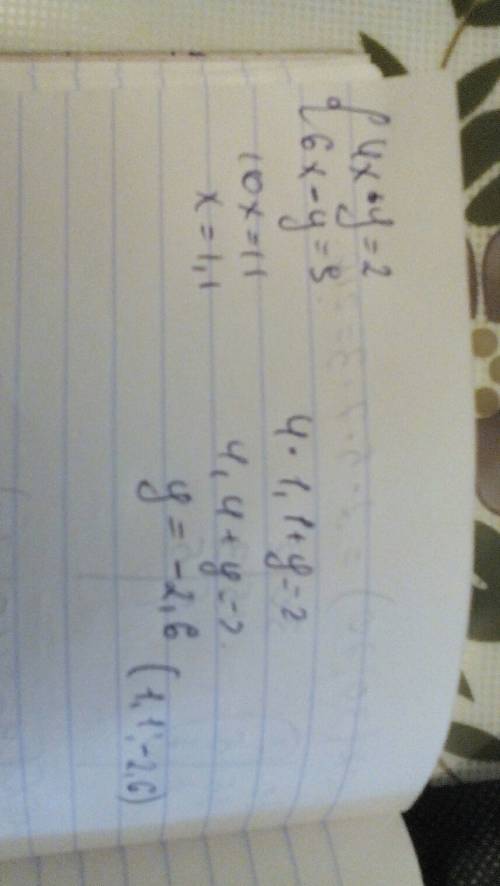 {4x+y=2
6x-y=9
10x=11
x=1,1
4·1,1+y=2
4,4+y=2
y=-2,6
(1,1;-2,6)